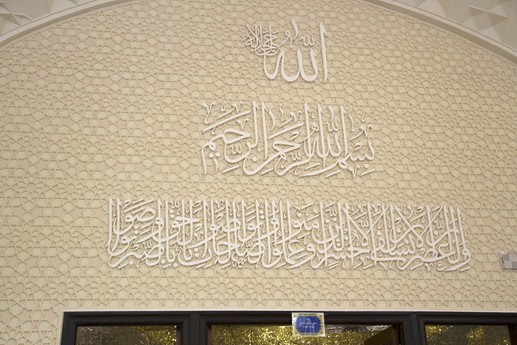 الله جل جلاله
بسم الله الرحمن الرحيم
والعصر إن الإنسان لفي خسر إلا الذين آمنوا وعملوا الصالحات وتواصوا بالحق وتواصوا بالصبر